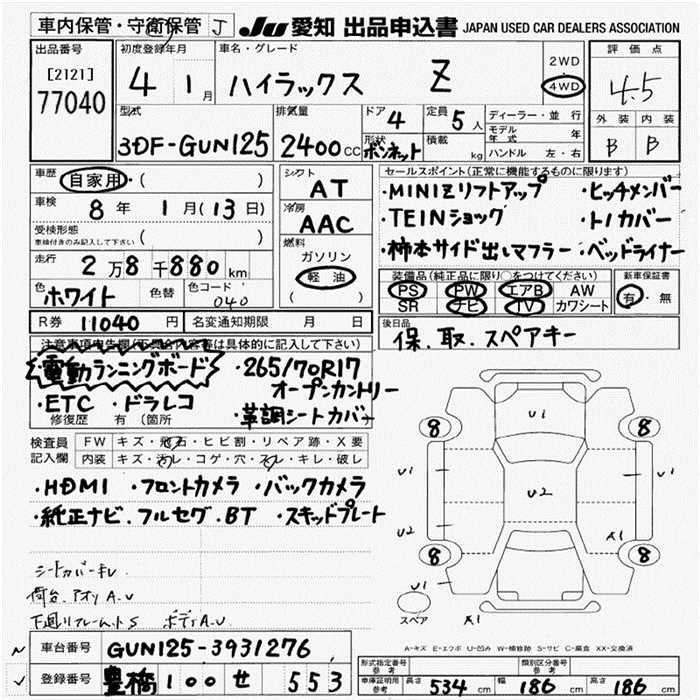 車内保管・守衛保管 J JU 愛知 出品申込書 JAPAN USED CAR DEALERS ASSOCIATION
出品番号
[2121]
77040
初度登録年月
4 1月
車名・グレード
ハイラックス Z
2WD
・
4WD
評価点
4.5
外装 内装
B B
型式
3DF-GUN125
排気量
2400cc
ドア 4
形状
ボンネット
定員 5人
積載 kg
ディーラー・並行
モデル年式 年
ハンドル 左・右
車歴 自家用・( )
車検 8年 1月(13日)
受検形態
車検付きのみ記入して下さい ( )
走行 2万8千880km
色 ホワイト 色替 色コード 040
R券 11040円 名変通知期限 月 日
シフト
AT
冷房
AAC
燃料
ガソリン
軽油
( )
セールスポイント(正常に機能するものに限ります)
・MINIZリフトアップ ・ヒッチメンバー
・TEINショック ・トノカバー
・柿本サイド出しマフラー ・ベッドライナー
装備品(純正品に限り○をつけてください)
PS PW エアB AW
SR ナビ TV カワシート
新車保証書
有・無
後日品
保、取、スペアキー
注意事項申告欄(不具合内容等は具体的に記入して下さい)
・電動ランニングボード ・265/70R17
オープンカントリー
・ETC ・ドラレコ
・革調シートカバー
修復歴 有(箇所
検査員記入欄
FW キズ・飛石・ヒビ割・リペア跡・X要
内装 キズ・汚レ・コゲ・穴・スレ・キレ・破レ
・HDMI ・フロントカメラ ・バックカメラ
・純正ナビ、フルセグ、BT ・スキッドプレート
シートカバーキレ
荷台、アオリ A.U
下廻リフレームトS ボディA.U
車台番号 GUN125-3931276
登録番号 豊橋 100 せ 553
U1
U2
8 8
8 8
U1
U2
U1
U1
A1
A1
スペア
A-キズ E-エクボ U-凹み W-補修跡 S-サビ C-腐食 XX-交換済
形式指定番号 参考
類別区分番号 参考
車庫証明用 参考 長さ 534cm 幅 186cm 高さ 186cm